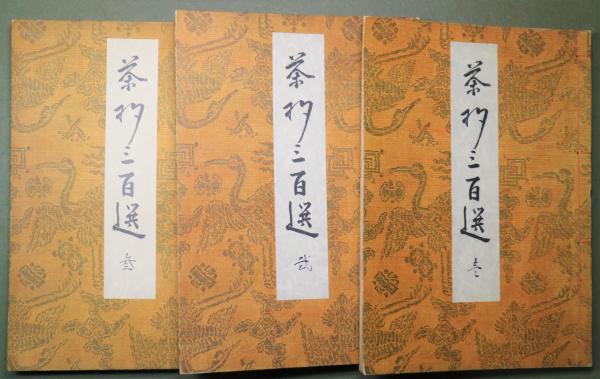 茶杓三百選 壱
茶杓三百選 弐
茶杓三百選 参